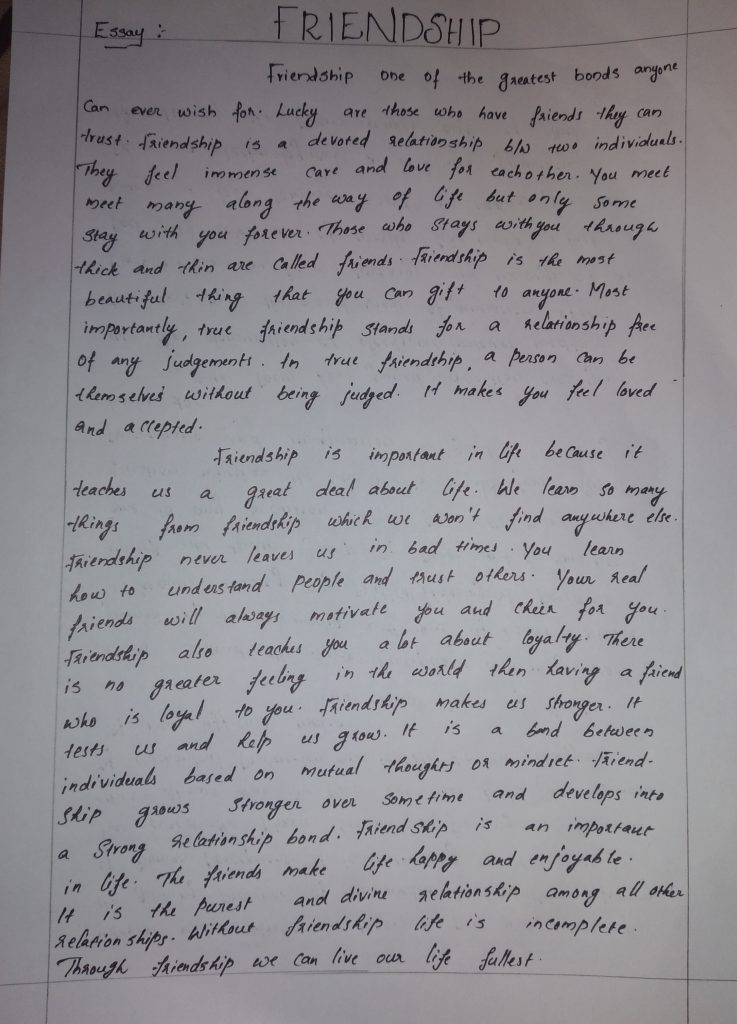 Essay :- FRIENDSHIP
Friendship one of the greatest bonds anyone
Can ever wish for. Lucky are those who have friends they can
trust. Friendship is a devoted relationship b/w two individuals.
They feel immense care and love for eachother. You meet
meet many along the way of life but only some
stay with you forever. Those who stays withyou through
thick and thin are called friends. Friendship is the most
beautiful thing that you can gift to anyone. Most
importantly, true friendship stands for a relationship free
of any judgements. In true friendship, a person can be
themselves without being judged. It makes you feel loved
and accepted.
Friendship is important in life because it
teaches us a great deal about life. We learn so many
things from friendship which we won't find anywhere else.
Friendship never leaves us in bad times. You learn
how to understand people and trust others. Your real
friends will always motivate you and cheer for you.
Friendship also teaches you a lot about loyalty. There
is no greater feeling in the world then having a friend
who is loyal to you. Friendship makes us stronger. It
tests us and help us grow. It is a bond between
individuals based on mutual thoughts or mindset. Friend-
ship grows stronger over sometime and develops into
a strong relationship bond. Friendship is an important
in life. The friends make life happy and enjoyable.
It is the purest and divine relationship among all other
relationships. Without friendship life is incomplete.
Through friendship we can live our life fullest.